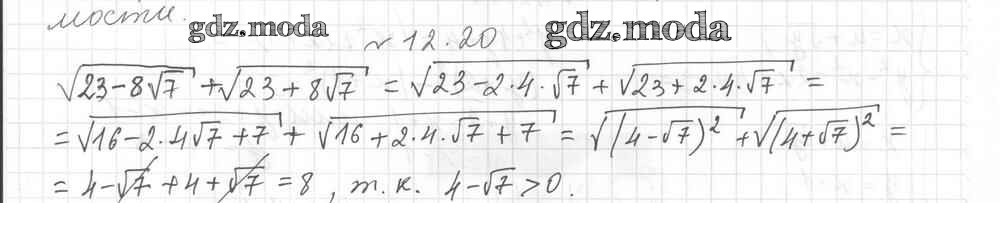 мости.
gdz.moda gdz.moda
№ 12.20
√(23-8√7) + √(23+8√7) = √(23-2·4·√7) + √(23+2·4·√7) =
= √(16-2·4√7+7) + √(16+2·4·√7+7) = √((4-√7)²) + √((4+√7)²) =
= 4-√7+4+√7 = 8, т.к. 4-√7>0.